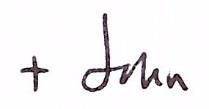 + John